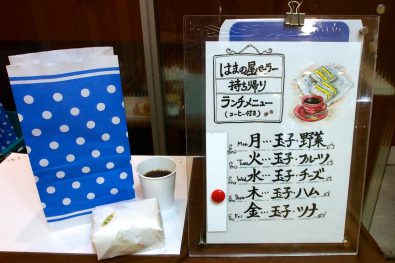 はまの屋パーラー
持ち帰り
ランチメニュー
(コーヒー付き)
Mon 月…玉子・野菜
Tue 火…玉子・フルーツ
Wed 水…玉子・チーズ
Thurs 木…玉子・ハム
Fri 金…玉子・ツナ